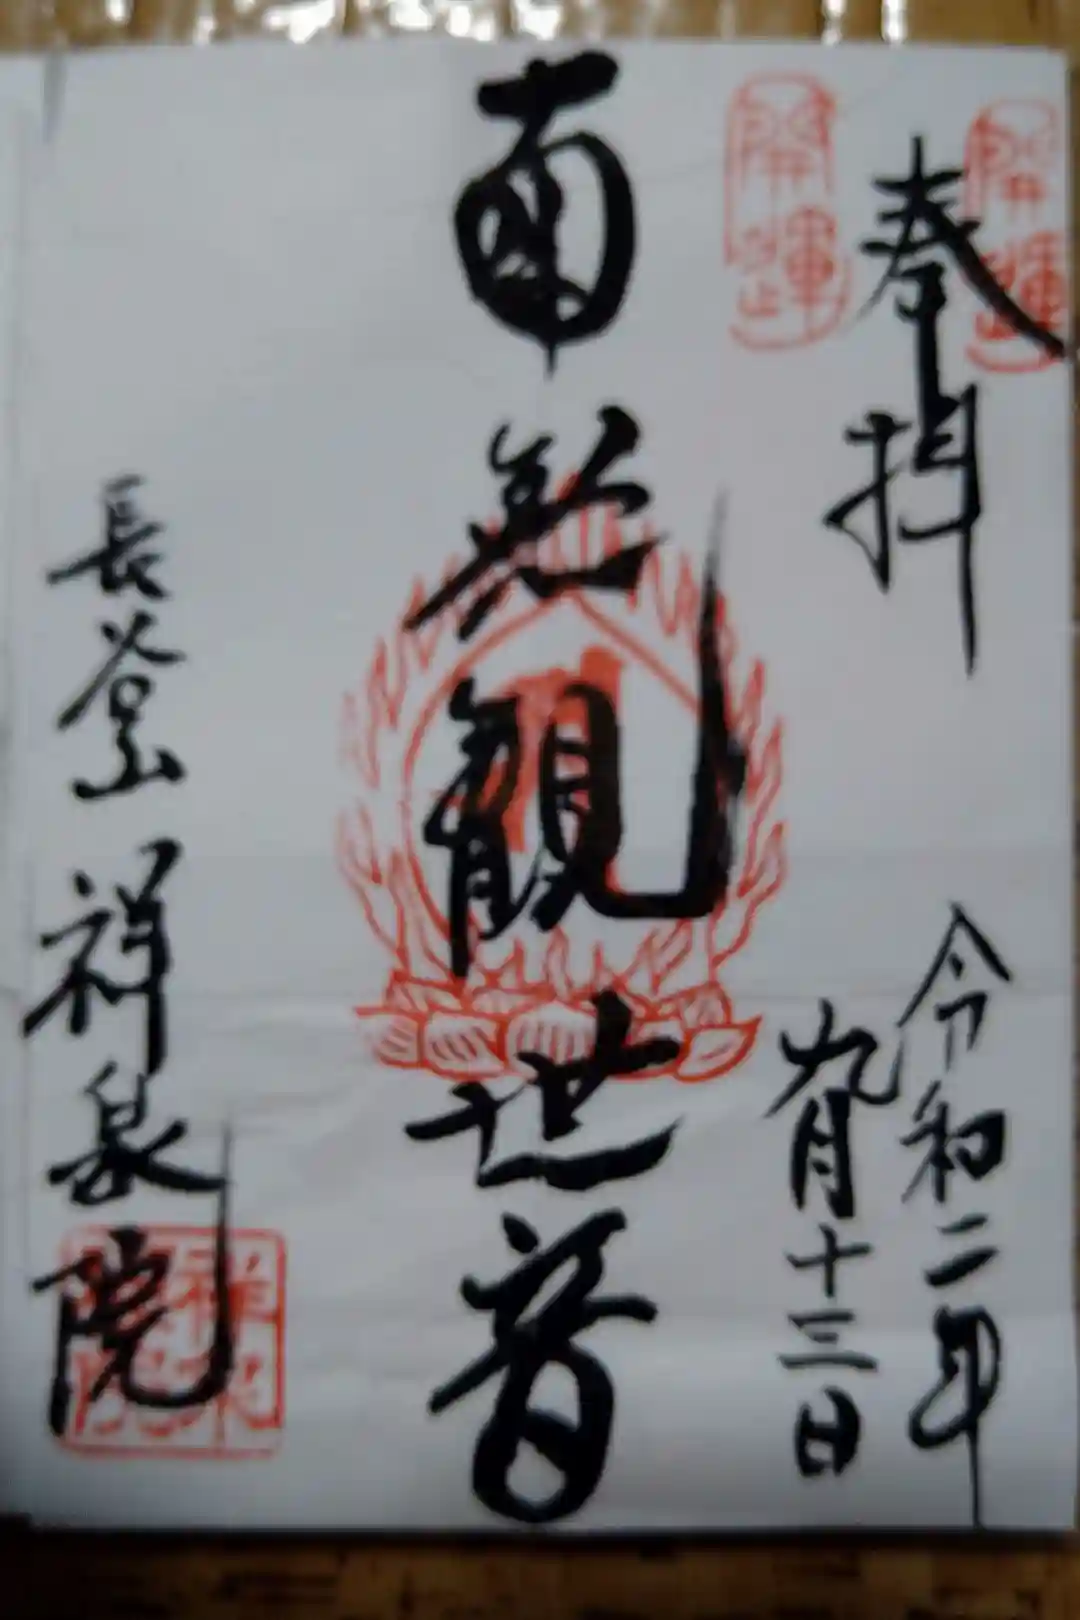 奉拝
開運
開運
令和二年
九月十三日
南無観世音
長谷山
祥泉院